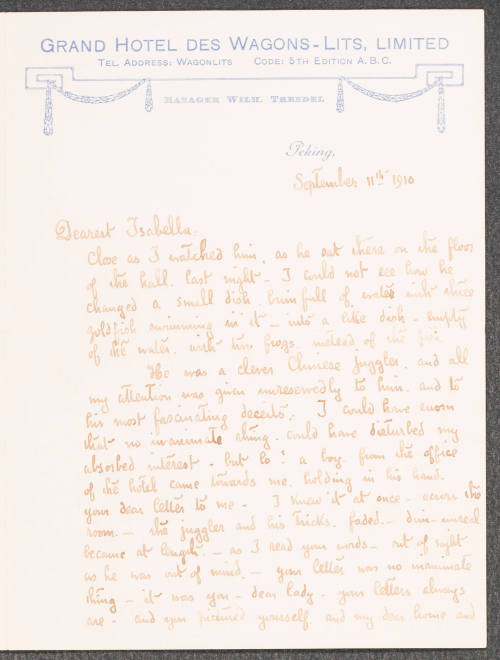 GRAND HOTEL DES WAGONS-LITS, LIMITED
TEL. ADDRESS: WAGONLITS CODE: 5TH EDITION A.B.C.
MANAGER WILH. TRENDEL
Peking,
September 11th 1910
Dearest Isabella.
Close as I watched him, as he sat there on the floor
of the hall. last night - I could not see how he
changed a small dish brim full of water with three
goldfish swimming in it - into a like dish - empty
of the water. with two frogs. instead of the fish
He was a clever Chinese juggler. and all
my attention was given unreservedly to him. and to
his most fascinating deceits. I could have sworn
that no inanimate thing. could have disturbed my
absorbed interest - but lo! a boy. from the office
of the hotel came towards me. holding in his hand.
your dear letter to me - I knew it at once - across the
room. - the juggler and his tricks. faded - dim - unreal
became at length - as I read your words - out of sight
as he was out of mind. - your letter was no inanimate
thing - it was you - dear lady - your letters always
are - and you pictured yourself. and my dear home and